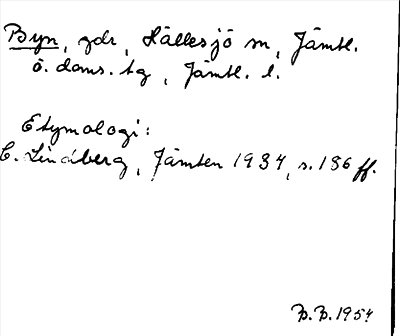 Byn, gdr, Hällesjö sn, Jämtl.
ö. doms. tg, Jämtl. l.
Etymologi:
C. Lindberg, Jämten 1934, s. 136 ff.
B.B. 1954